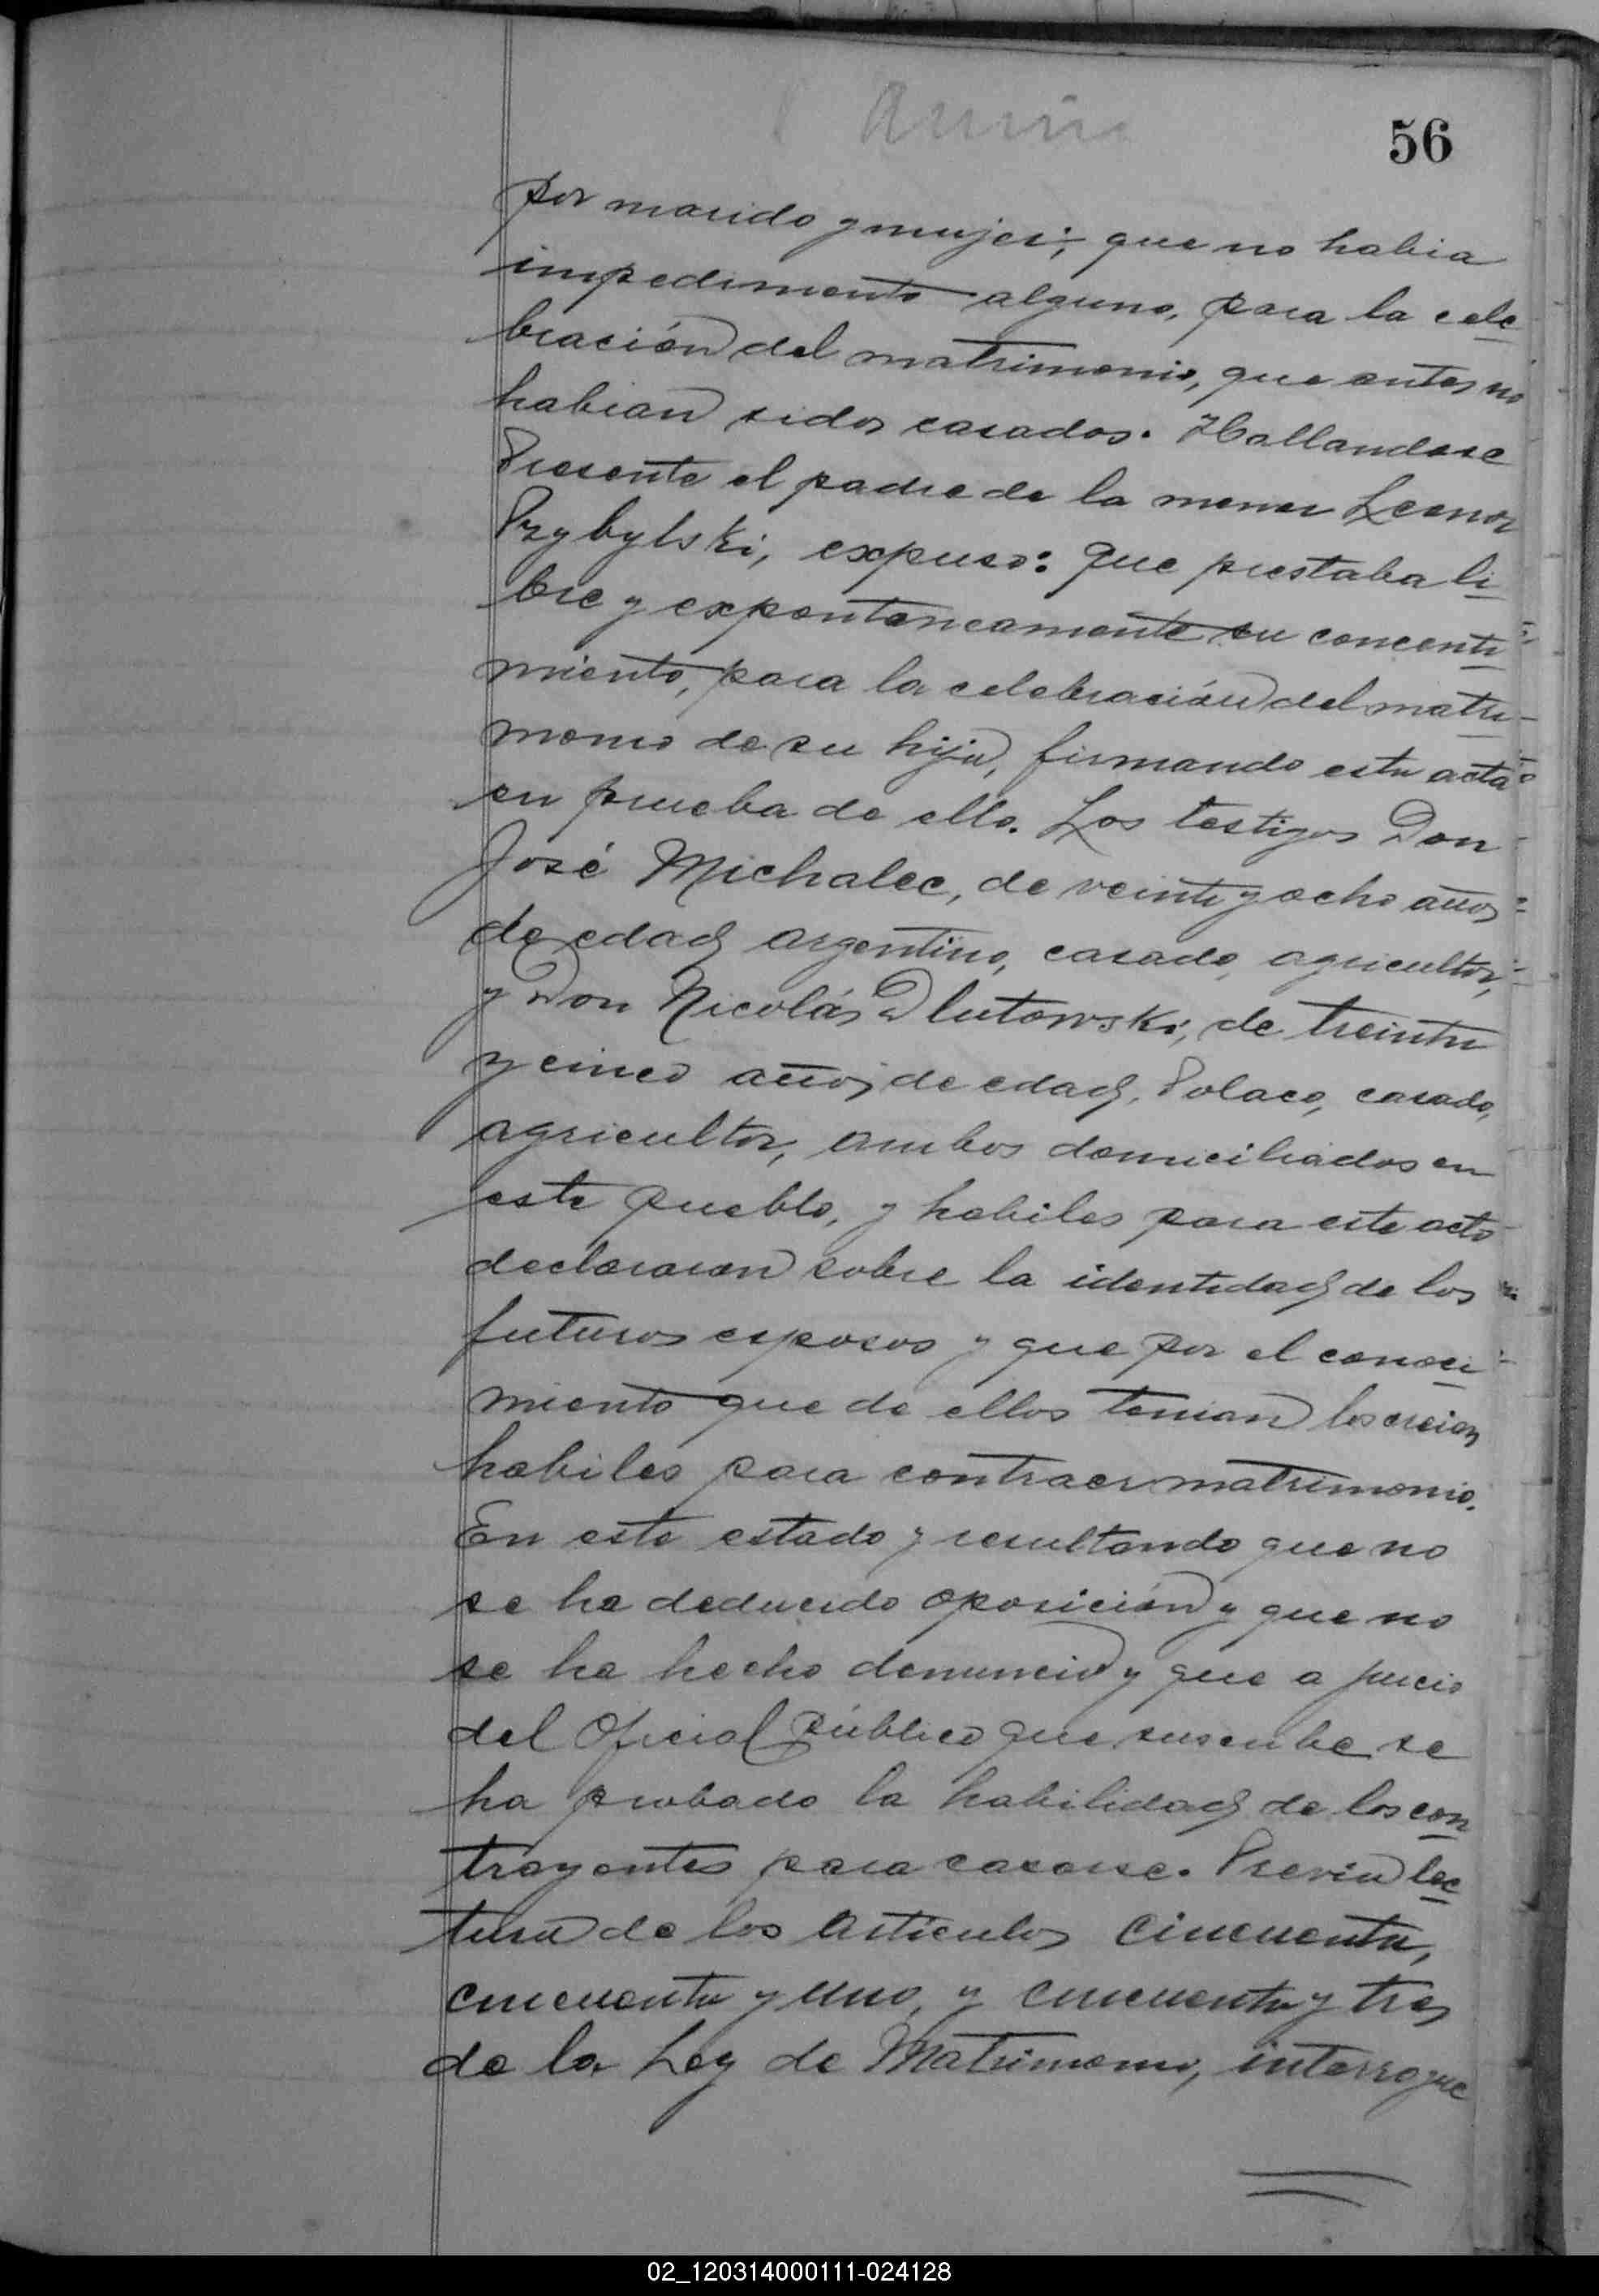 56
por marido y mujer; que no habia
impedimento alguno, para la cele
bración del matrimonio, que antes no
habian sidos casados. Hallandose
Presente el padre de la menor Leonor
Przybylski, expuso: que prestaba li
bre y expontaneamente su concenti
miento, para la celebración del matri
monio de su hija, firmando esta acta
en prueba de ello. Los testigos Don
José Michalec, de veinte y ocho años
de edad argentino, casado, agricultor,
y Don Nicolás Dlutowski, de treinta
y cinco años de edad, Polaco, casado,
agricultor, ambos domiciliados en
este pueblo, y habiles para este acto
declararon sobre la identidad de los
futuros esposos y que por el conoci
miento que de ellos tenian los creian
habiles para contraer matrimonio.
En este estado y resultando que no
se ha deducido oposición y que no
se ha hecho denuncia y que a juicio
del Oficial Público que suscribe se
ha probado la habilidad de los con
trayentes para casarse. Previa lec
tura de los articulos cincuenta,
cincuenta y uno, y cincuenta y tres
de la Ley de Matrimonio, interrogue
02_120314000111-024128